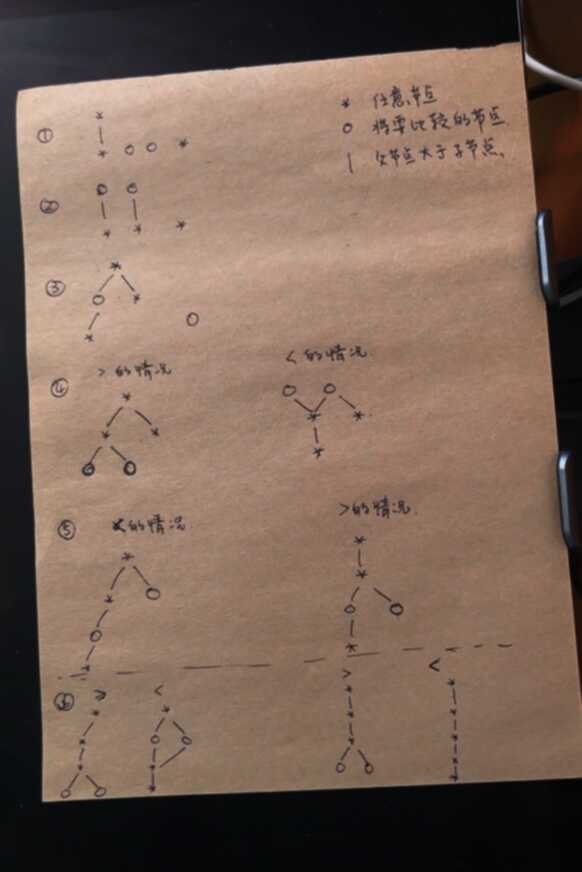 * 任意节点
○ 将要比较的节点
| 父节点大于子节点、
①
②
③
④ >的情况 <的情况
⑤ <的情况 >的情况
⑥ > < > <